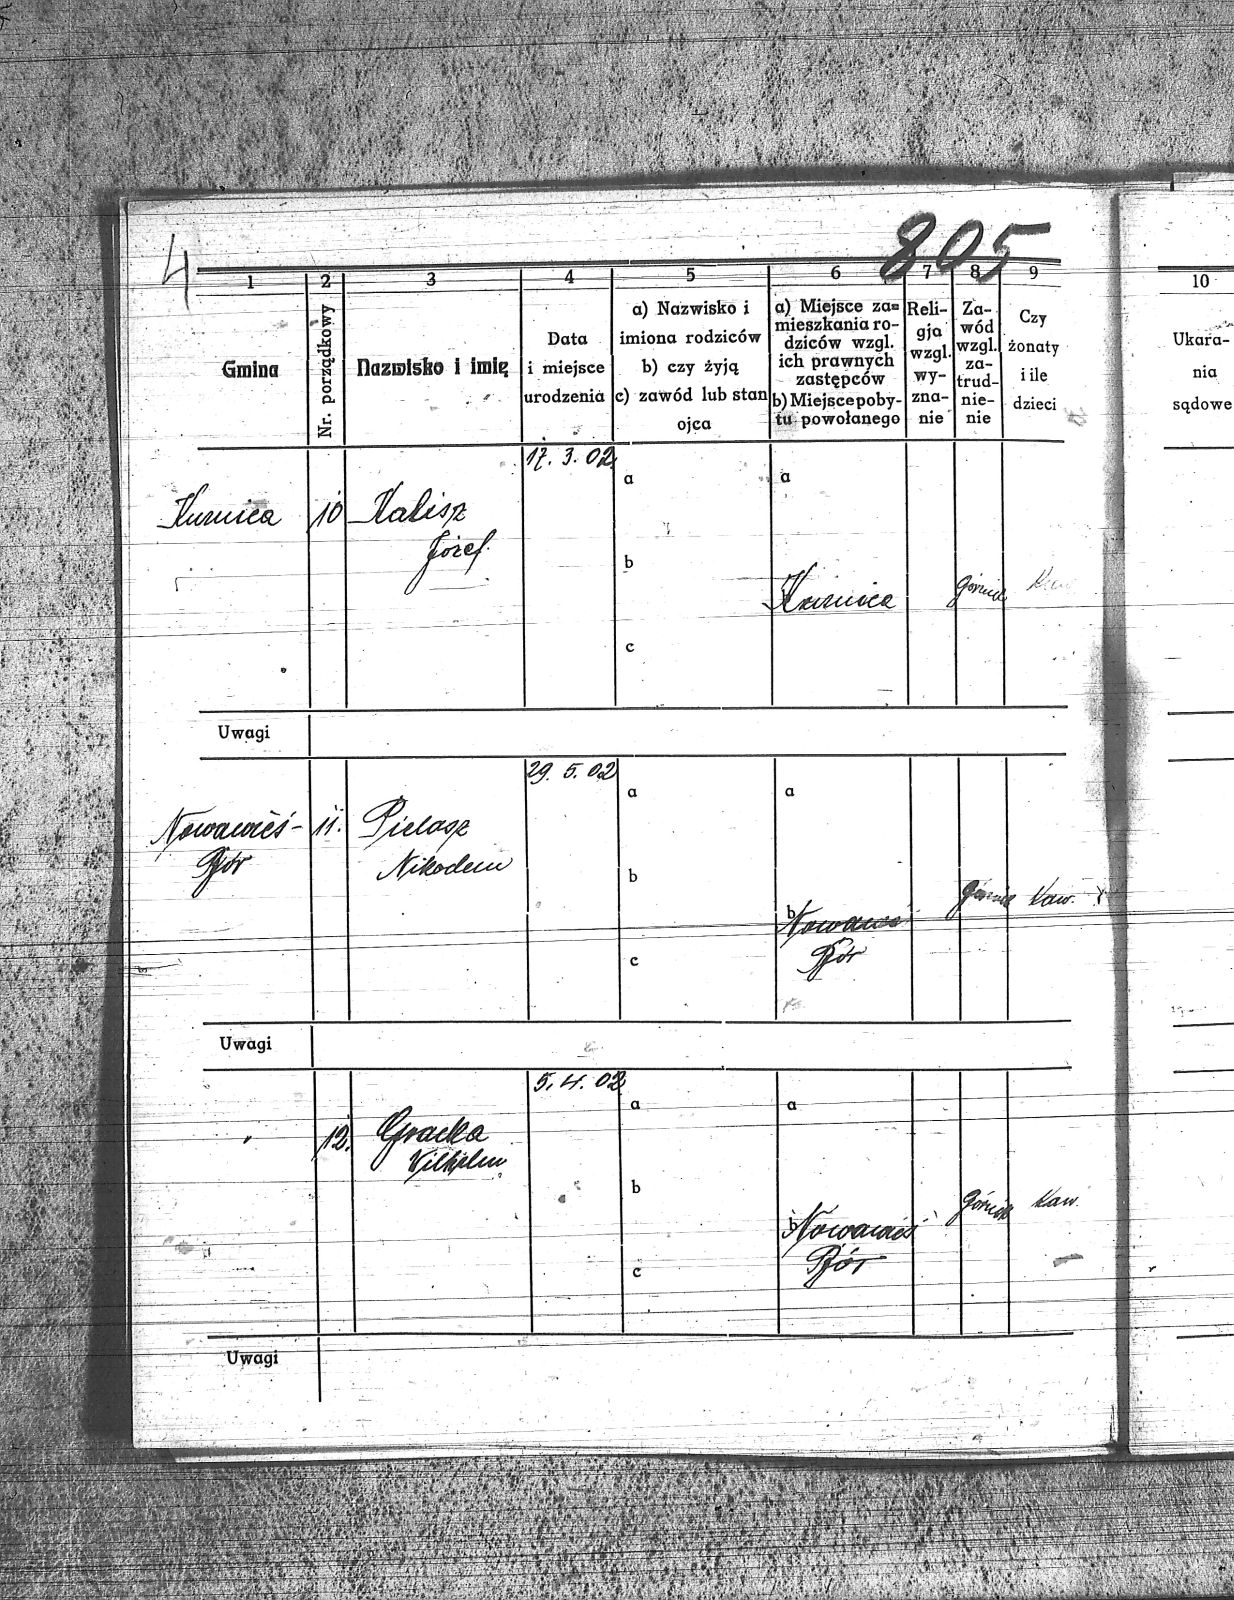 4
805
1
2
3
4
5
6
7
8
9
10
Gmina
Nr. porządkowy
Nazwisko i imię
Data
i miejsce
urodzenia
a) Nazwisko i
imiona rodziców
b) czy żyją
c) zawód lub stan
ojca
a) Miejsce za=
mieszkania ro-
dziców wzgl.
ich prawnych
zastępców
b) Miejsce poby-
tu powołanego
Reli-
gja
wzgl.
wy-
zna-
nie
Za-
wód
wzgl.
za-
trud-
nie-
nie
Czy
żonaty
i ile
dzieci
Ukara-
nia
sądowe
17. 3. 02
a
a
10
Kalisz
Józef.
b
górnik
c
Uwagi
29. 5. 02
a
a
Nowawieś- 11. Pielasz
Nikodem
b
górnik Kaw.
b
Nowawieś
c
Uwagi
5. 4. 02
a
a
" 12. Gracka
Wilhelm
b
górnik Kaw.
b Nowawieś
c
Uwagi